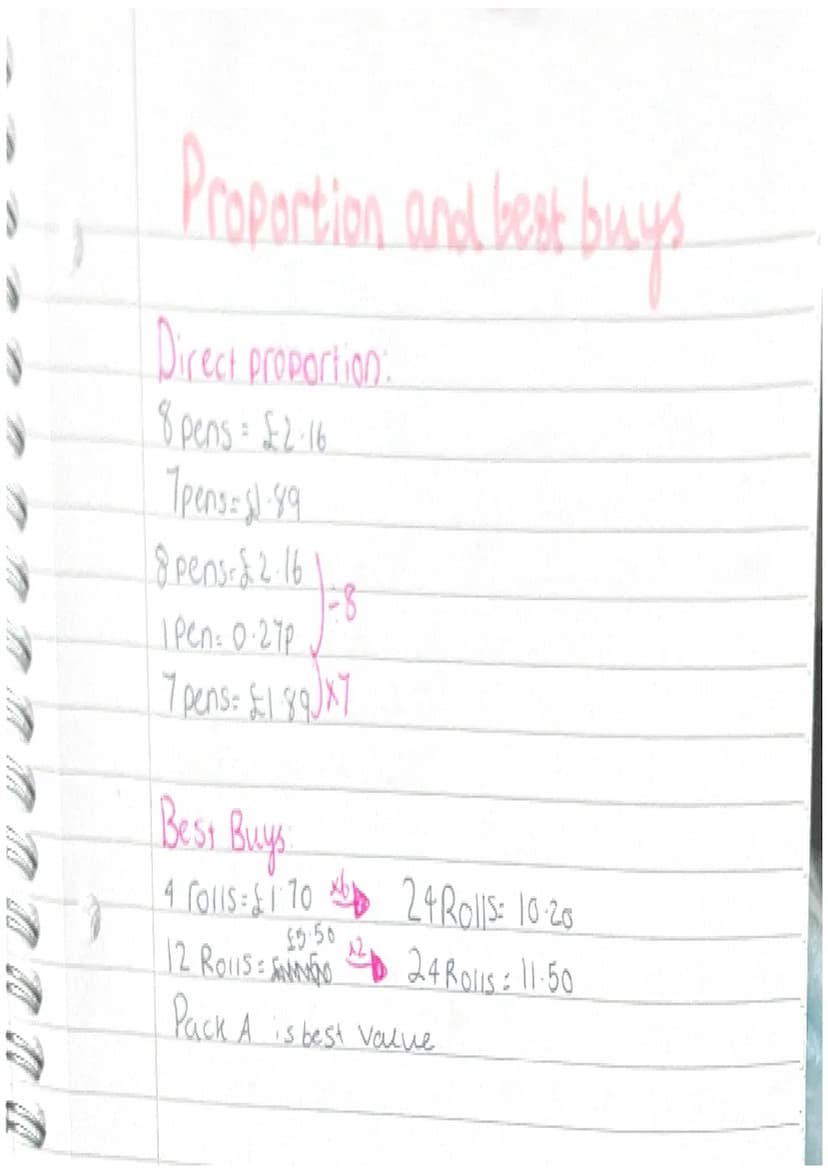 Proportion and best buys
Direct proportion:
8 pens = £2.16
7 pens = £1.89
8 pens = £2.16
÷8
1 Pen = 0.27p
7 pens = £1.89 x7
Best Buys:
4 rolls = £1.70 x6 → 24 Rolls = 10.20
£5.50
12 Rolls = x2 → 24 Rolls = 11.50
Pack A is best value